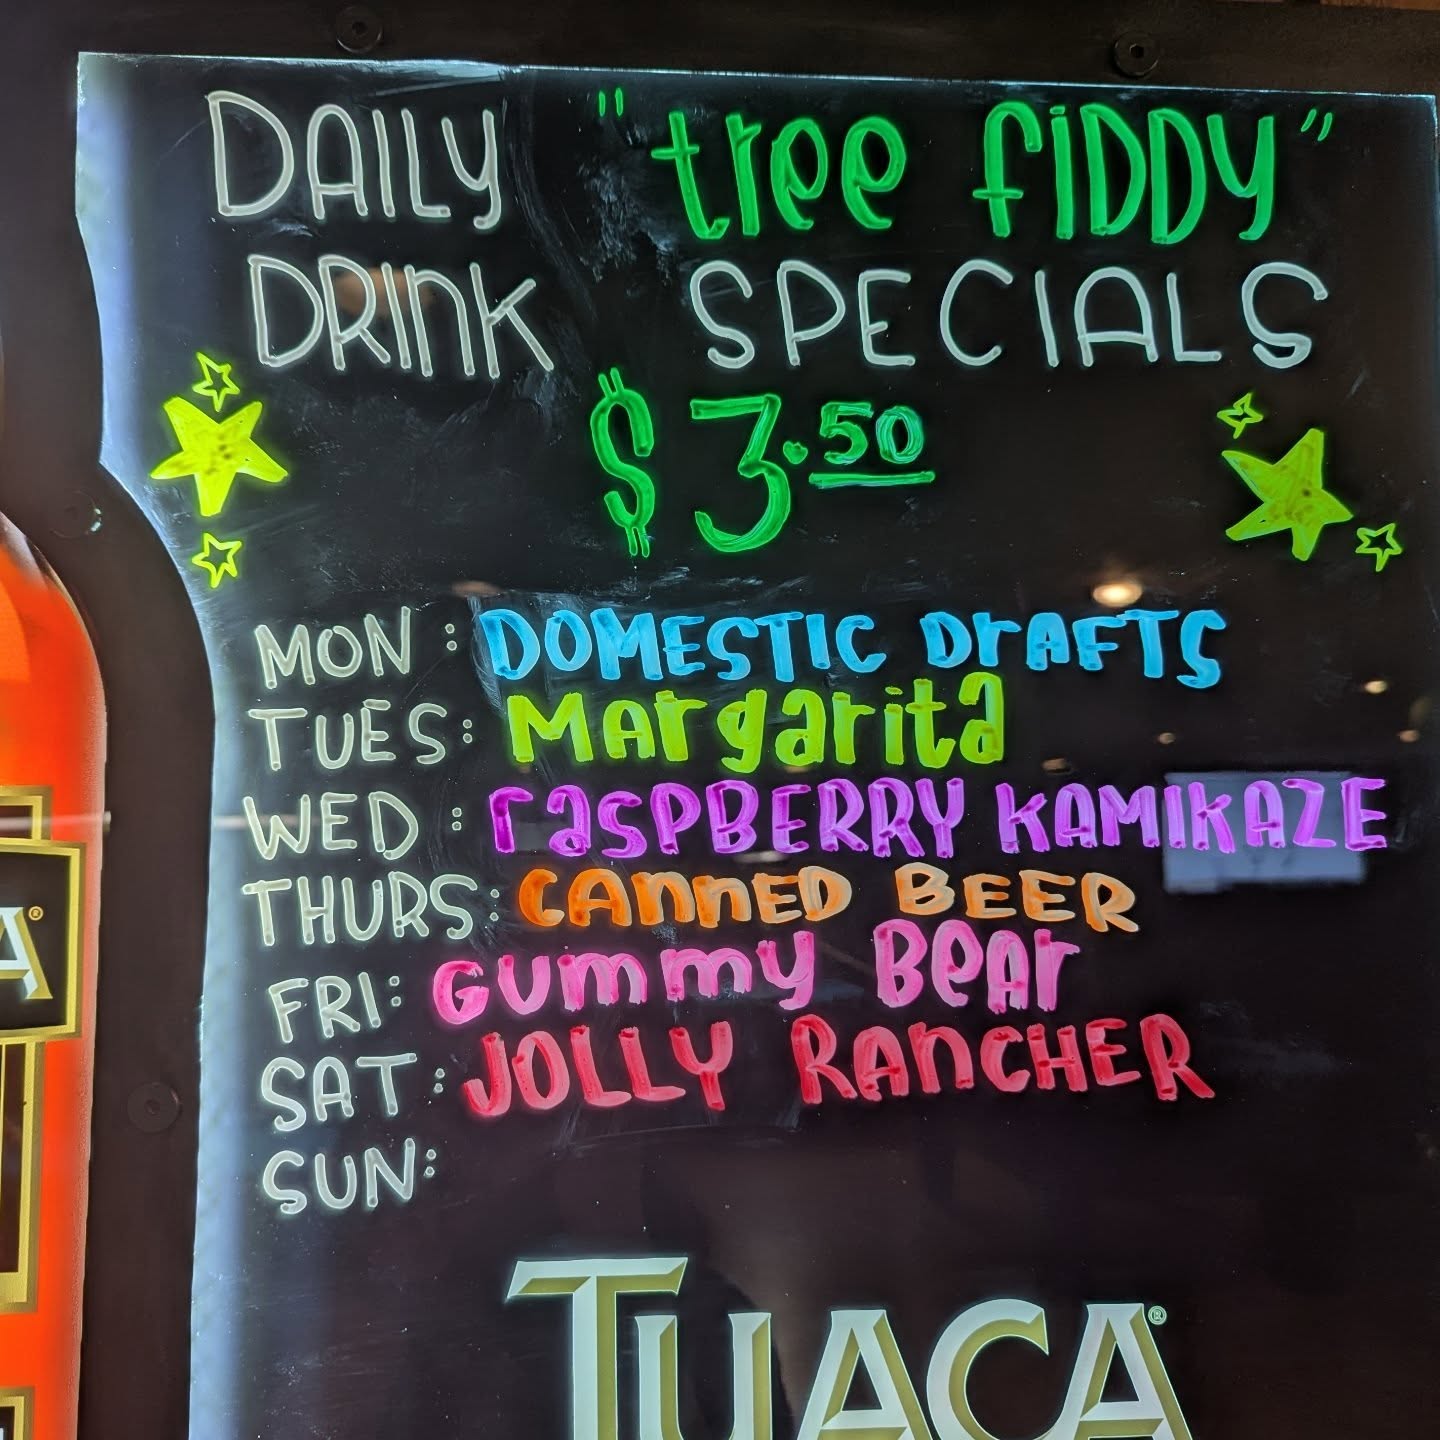 DAILY "tree fiDDY"
DRINK SPECIALS
$3.50
MON: DOMESTIC DrAFTS
TUES: Margarita
WED: raSPBERRY KAMIKAZE
THURS: CANNED BEER
FRI: Gummy Bear
SAT: JOLLY RANCHER
SUN:
TUACA®
A®